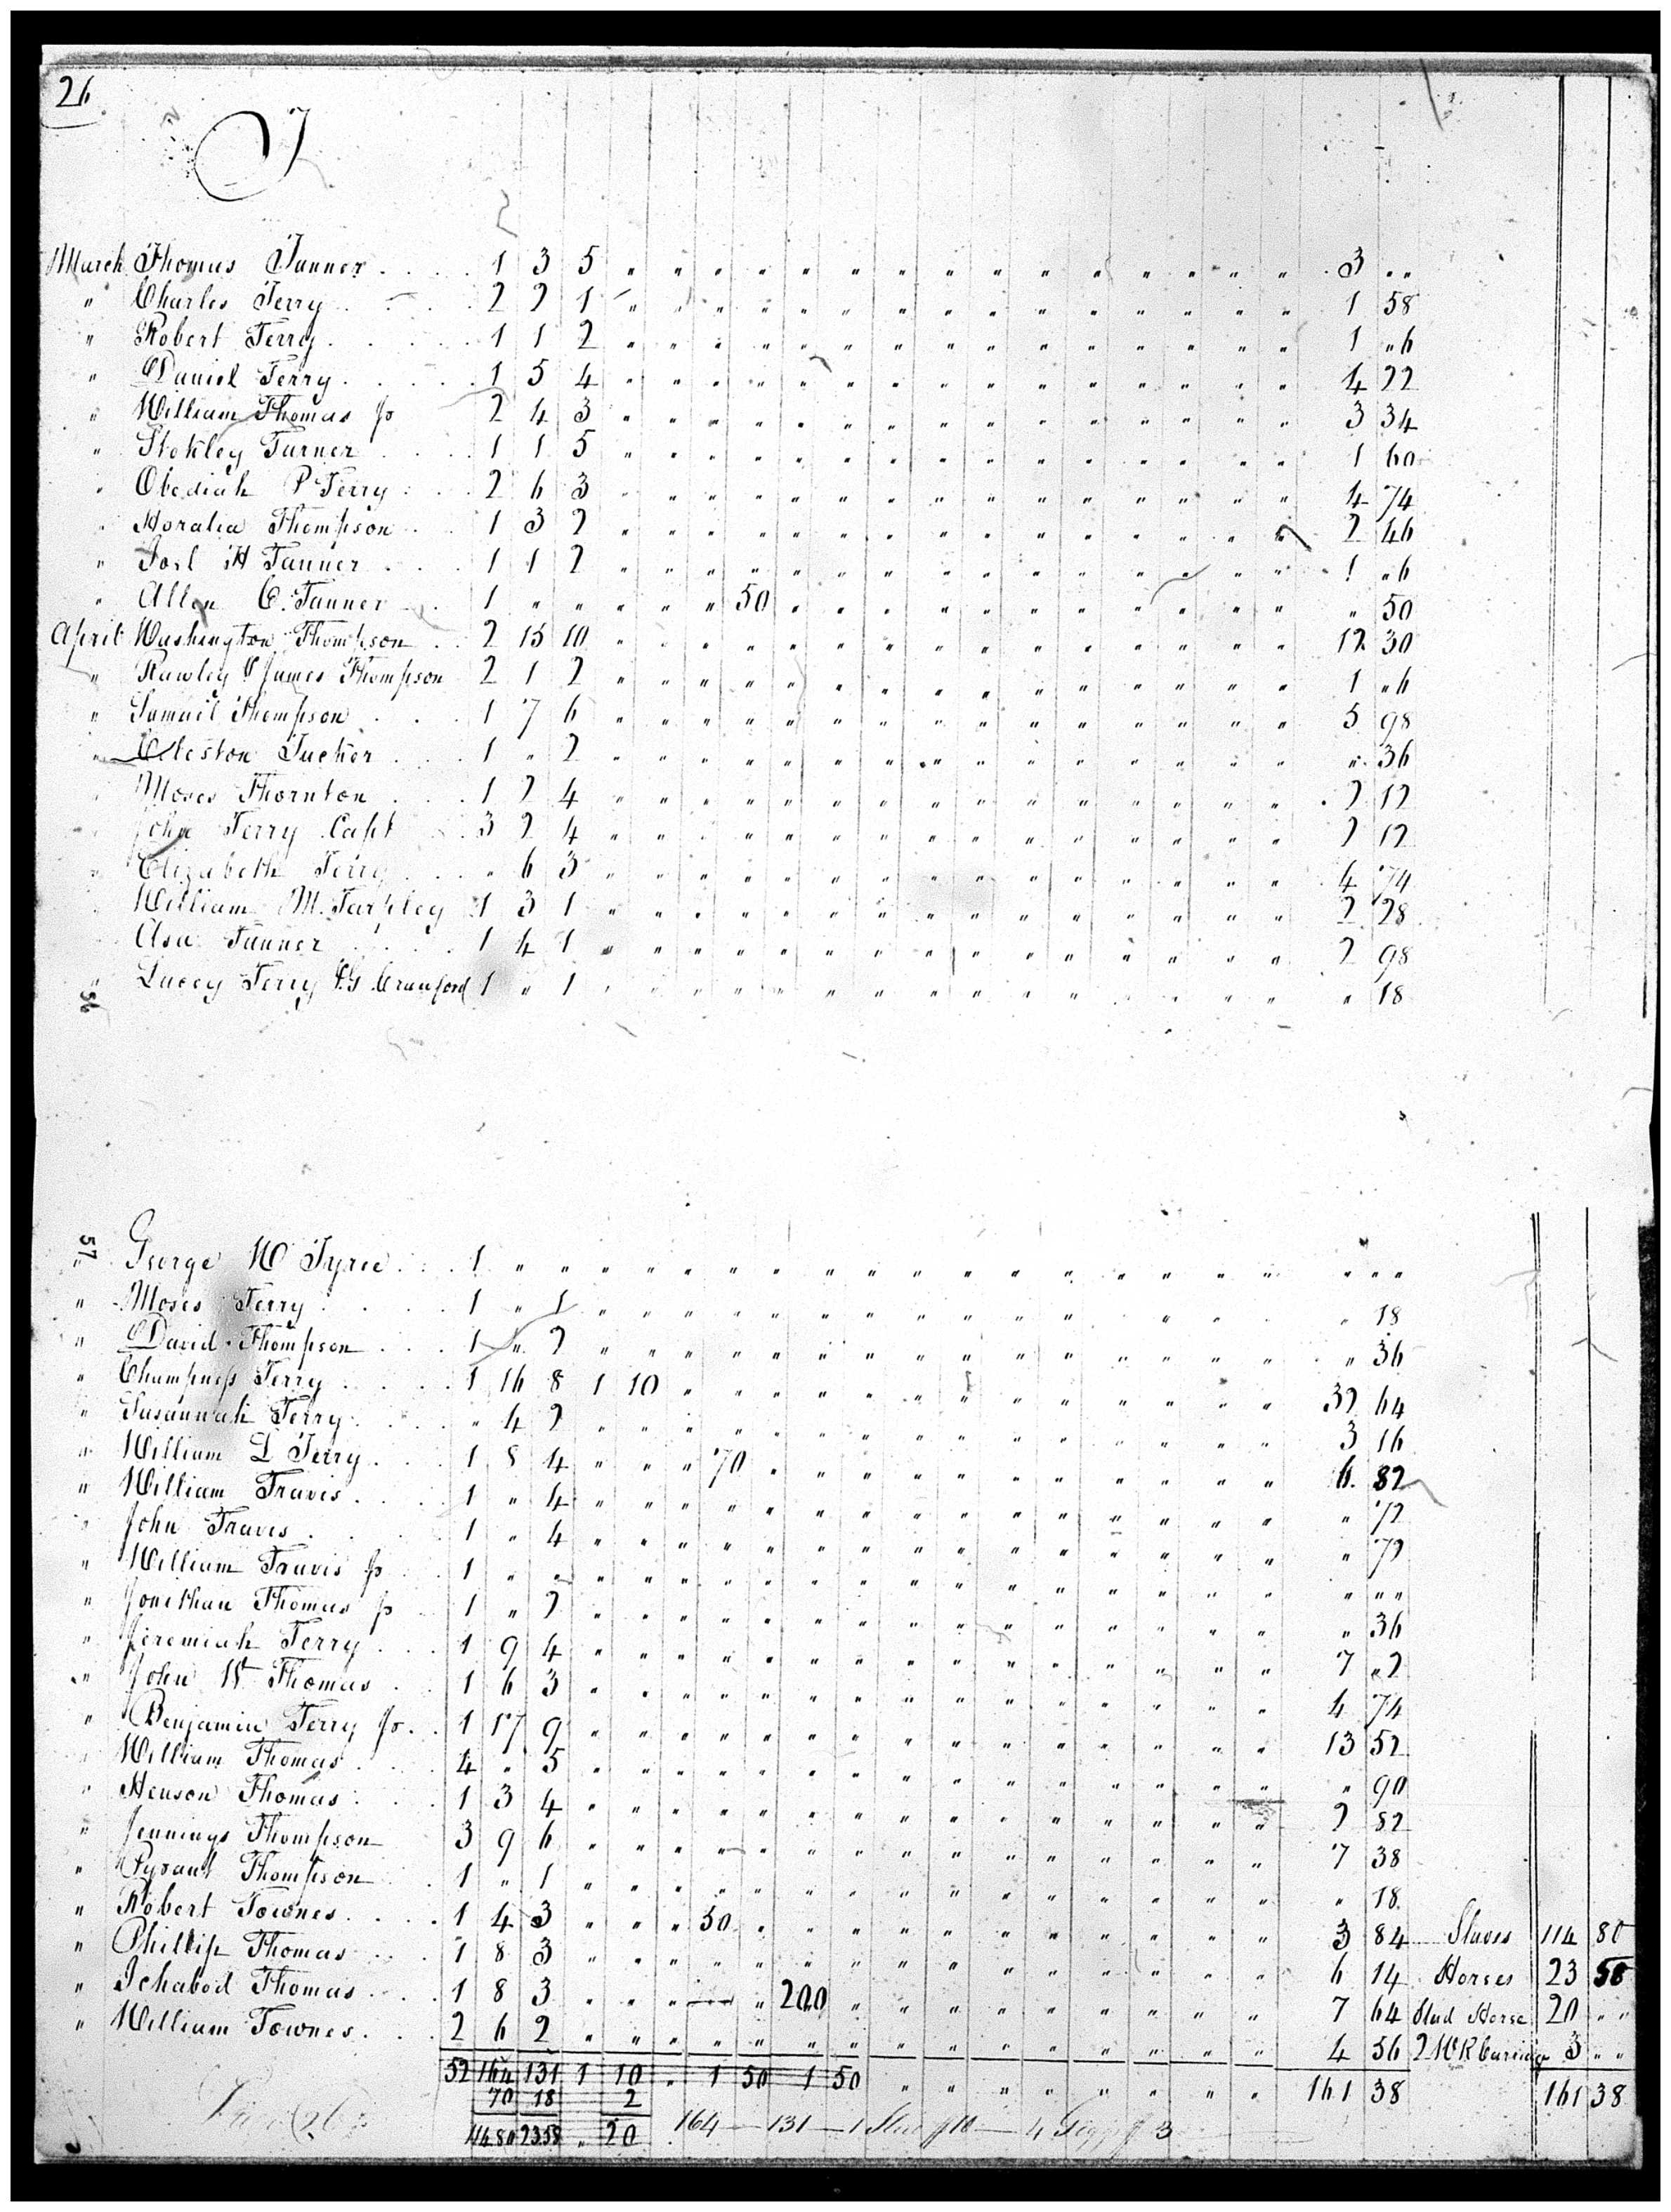 26
T
March Thomas Tanner 1 3 5 " " " " " " " " " " " " " " " 3 " "
" Charles Terry 2 2 1 " " " " " " " " " " " " " " 1 58
" Robert Terry 1 1 2 " " " " " " " " " " " " " " " 1 "6
" Daniel Terry 1 5 4 " " " " " " " " " " " " " " " 4 22
" William Thomas Jr 2 4 3 " " " " " " " " " " " " " " " 3 34
" Stokley Turner 1 1 5 " " " " " " " " " " " " " " " 1 60
" Obediah P Terry 2 6 3 " " " " " " " " " " " " " " " 4 74
" Horatia Thompson 1 3 2 " " " " " " " " " " " " " " " 2 46
" Joel H Tanner 1 1 2 " " " " " " " " " " " " " " " 1 "6
" Allen C. Tanner 1 " " " " " 50 " " " " " " " " " " " " 50
April Washington Thompson 2 15 10 " " " " " " " " " " " " " " " 12 30
" Rawley & James Thompson 2 1 2 " " " " " " " " " " " " " " " 1 "6
" Samuel Thompson 1 7 6 " " " " " " " " " " " " " " " 5 98
" Cleston Tucker 1 " 2 " " " " " " " " " " " " " " " " 36
" Moses Thornton 1 2 4 " " " " " " " " " " " " " " " 2 12
" John Terry Capt 3 2 4 " " " " " " " " " " " " " " " 2 12
" Elizabeth Terry " 6 3 " " " " " " " " " " " " " " " 4 74
William M. Tarpley 1 3 1 " " " " " " " " " " " " " " " 2 28
Asa Tanner 1 4 1 " " " " " " " " " " " " " " " 2 98
" Lucey Terry 1 " 1 " " " " " " " " " " " " " " " " 18
56
57
" George W Tyree 1 " " " " " " " " " " " " " " " " " " " "
" Moses Terry 1 " 1 " " " " " " " " " " " " " " " 18
" David Thompson 1 " 2 " " " " " " " " " " " " " " " " 36
" Champness Terry 1 16 8 1 10 " " " " " " " " " " " " " 32 64
" Susannah Terry " 4 2 " " " " " " " " " " " " " " " 3 16
" William L Terry 1 8 4 " " " 70 " " " " " " " " " " " 6 82
" William Travis 1 " 4 " " " " " " " " " " " " " " " " 72
" John Travis 1 " 4 " " " " " " " " " " " " " " " " 72
" William Travis Jr 1 " " " " " " " " " " " " " " " " " " " "
" Jonithan Thomas Jr 1 " 2 " " " " " " " " " " " " " " " " 36
" Jeremiah Terry 1 9 4 " " " " " " " " " " " " " " " 7 "2
" John W Thomas 1 6 3 " " " " " " " " " " " " " " " 4 74
" Benjamin Terry Jr. 1 17 9 " " " " " " " " " " " " " " " 13 52
" William Thomas 4 " 5 " " " " " " " " " " " " " " " " 90
" Henson Thomas 1 3 4 " " " " " " " " " " " " " " " 2 82
" Jennings Thompson 3 9 6 " " " " " " " " " " " " " " " 7 38
" Pyrant Thompson 1 " 1 " " " " " " " " " " " " " " " " 18
" Robert Townes 1 4 3 " " " 50 " " " " " " " " " " " 3 84 Slaves 114 80
" Phillip Thomas 1 8 3 " " " " " " " " " " " " " " " 6 14 Horses 23 58
" Ichabod Thomas 1 8 3 " " " " 200 " " " " " " " " " 7 64 Stud Horse 20 " "
" William Townes 2 6 2 " " " " " " " " " " " " " " " 4 56 2 W R Carriage 3 " "
52 164 131 1 10 " 1 50 1 50 " " " " " " " " 161 38 161 38
70 18 2
114 80 23 58 " 20 164 — 131 — 1 Stud $10 — 4 Giggs $ 3